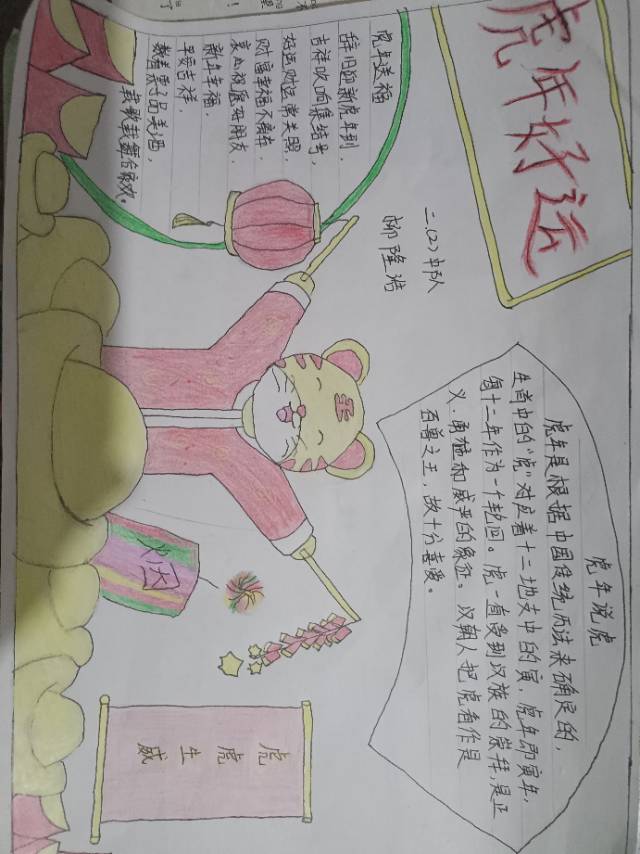 虎年好运
虎年送福
辞旧迎新虎年到，
吉祥吹响集结号，
好运对您常关照，
财富幸福不离在，
衷心祝愿好朋友，
新年幸福，
平安吉祥，
数着票子品美酒，
载歌载舞合家欢。
二、(2)中队
柳隆浩
虎年说虎
虎年是根据中国传统历法来确定的，
生肖中的“虎”对应着十二地支中的寅，虎年即寅年，
每十二年作为一个轮回。虎一直受到汉族的崇拜，是正
义、勇猛和威严的象征。汉朝人把虎看作是
百兽之王，故十分喜爱。
王
烟
虎虎生威